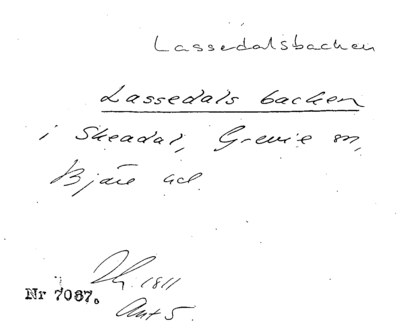 Lassedalsbacken
Lassedals backen
i Skeadal, Grevie sn,
Bjäre hd.
1811
Nr 7087.
Ant 5.